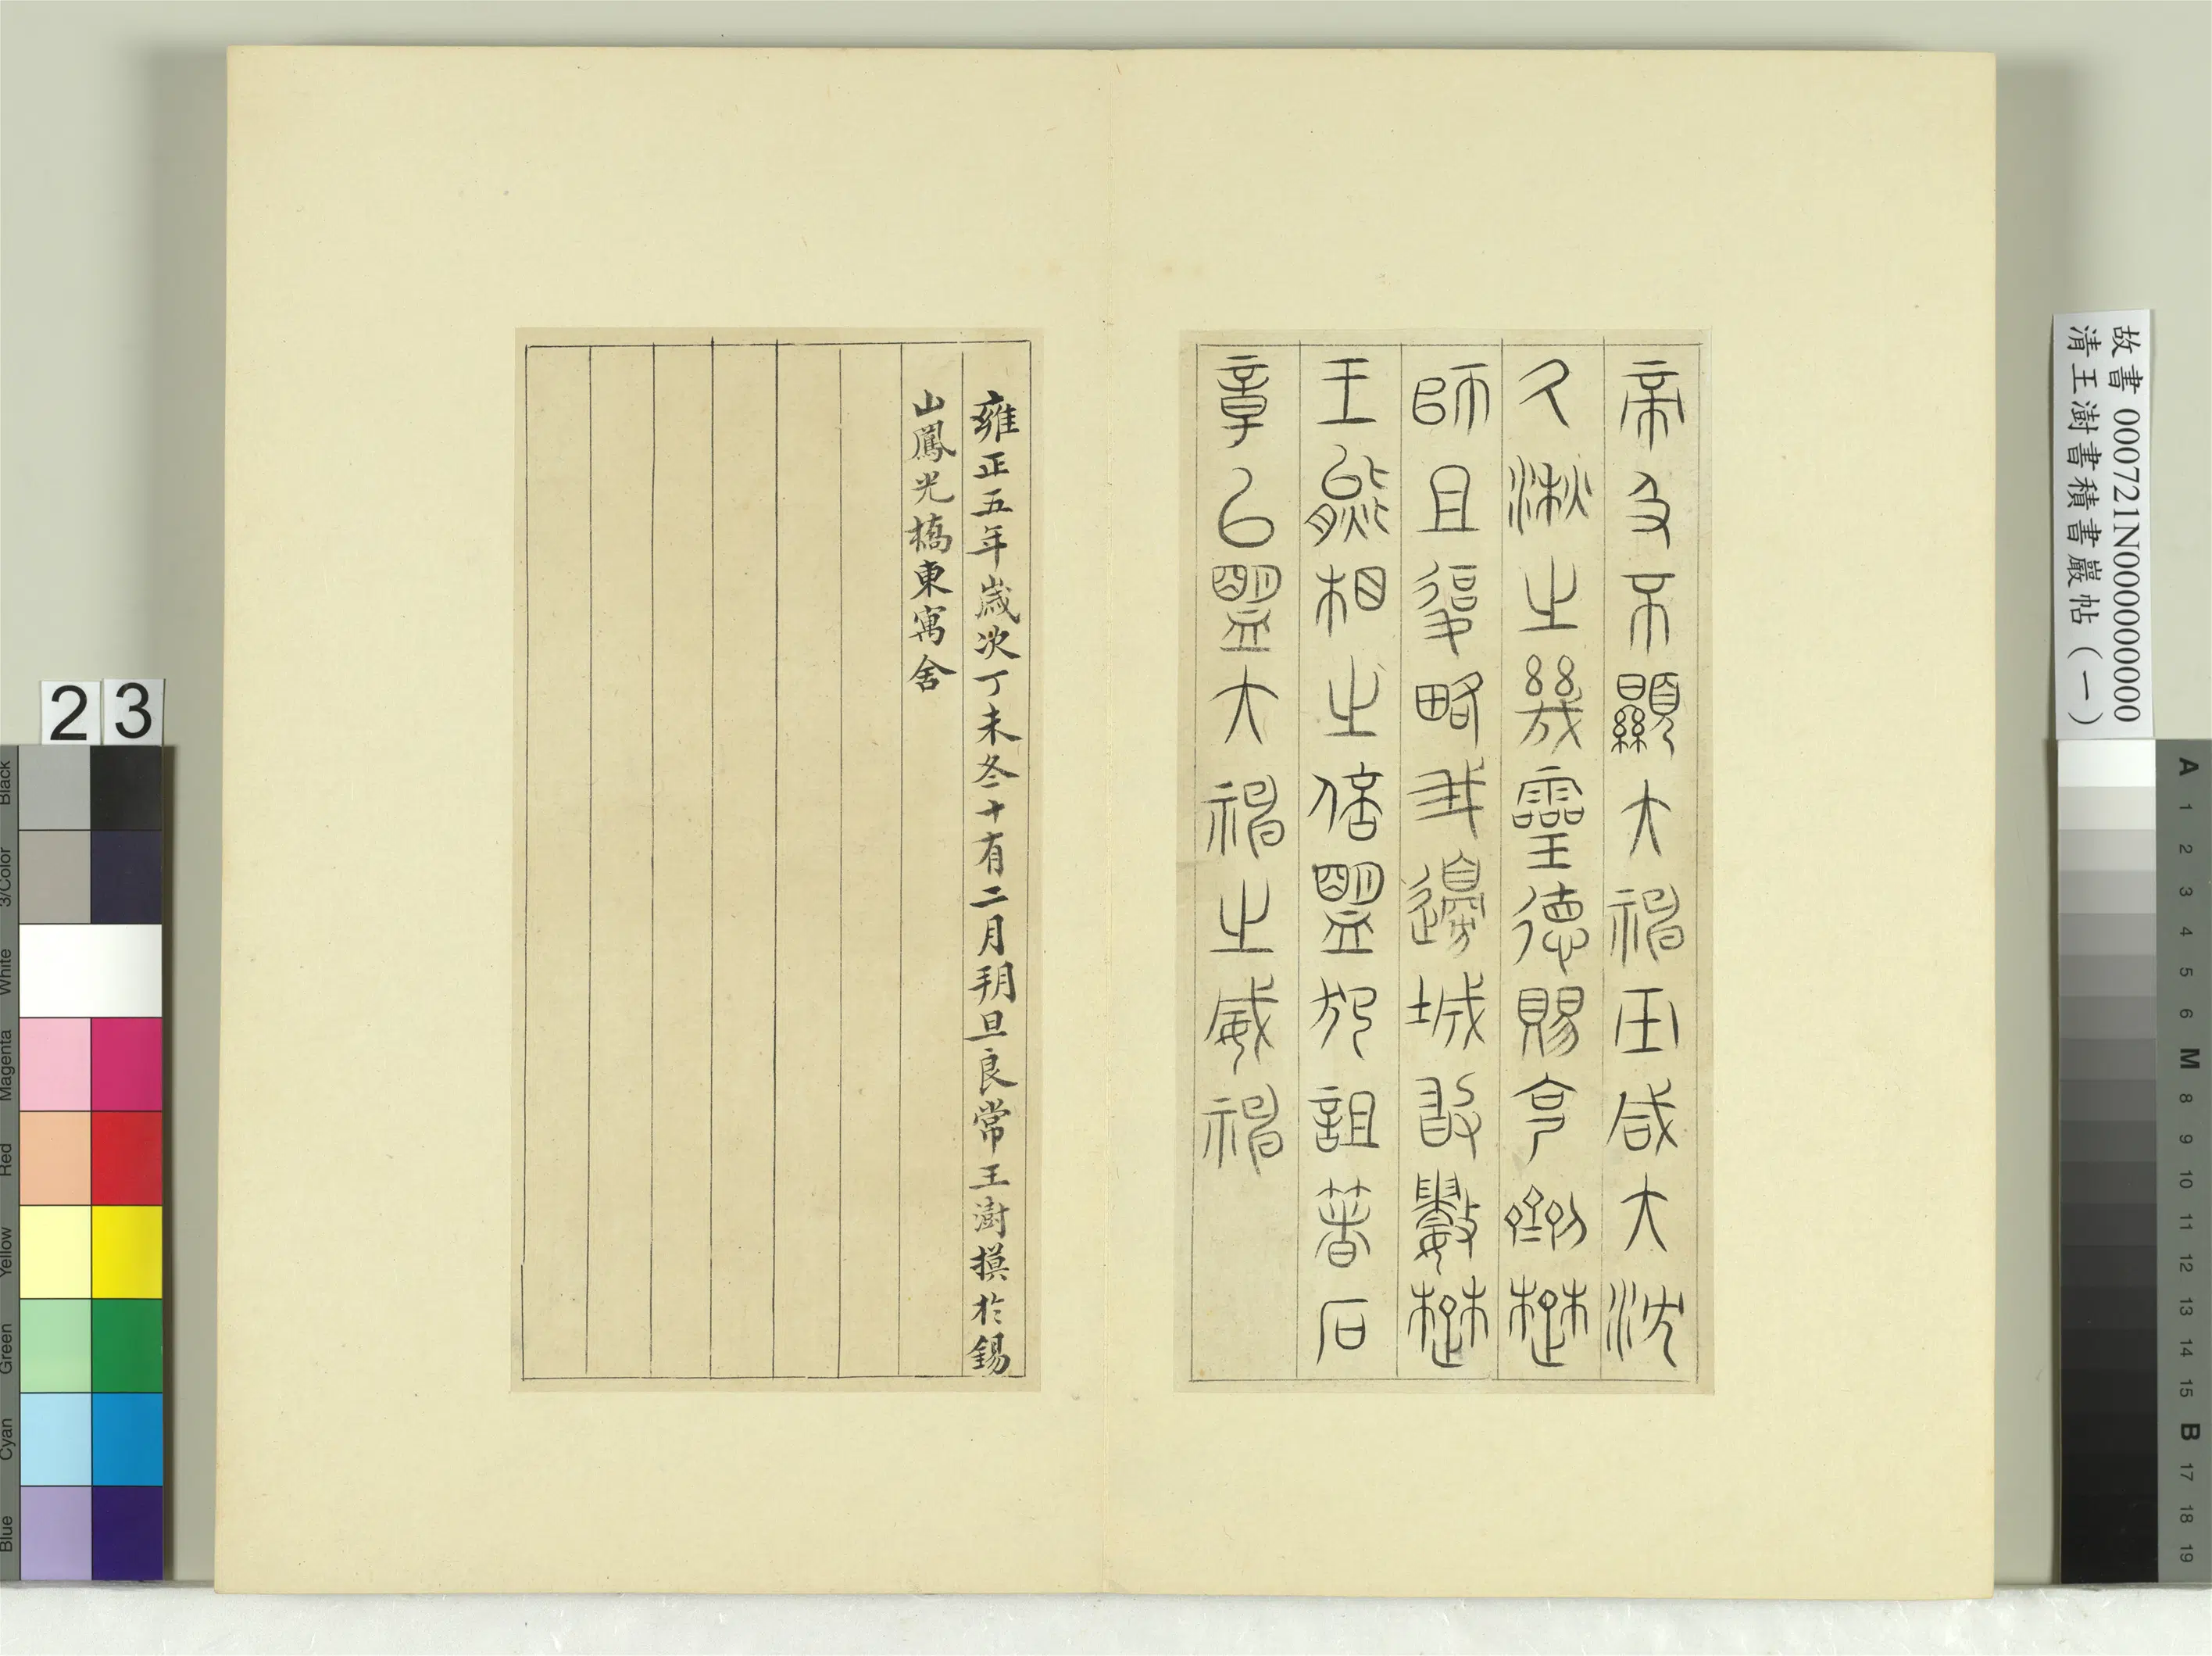 故書 000721N000000000
清王澍書積書巖帖（一）
帝及不顯大神巫咸大沈
久湫之幾靈德賜克劑楚
師且復略我邊城敢數楚
王熊相之倍盟犯詛著石
章以盟大神之威神
雍正五年歲次丁未冬十有二月朔旦良常王澍摸於錫
山鳳光橋東寓舍
23
Black
3/Color
White
Magenta
Red
Yellow
Green
Cyan
Blue
A
1
2
3
4
5
6
M
8
9
10
11
12
13
14
15
B
17
18
19